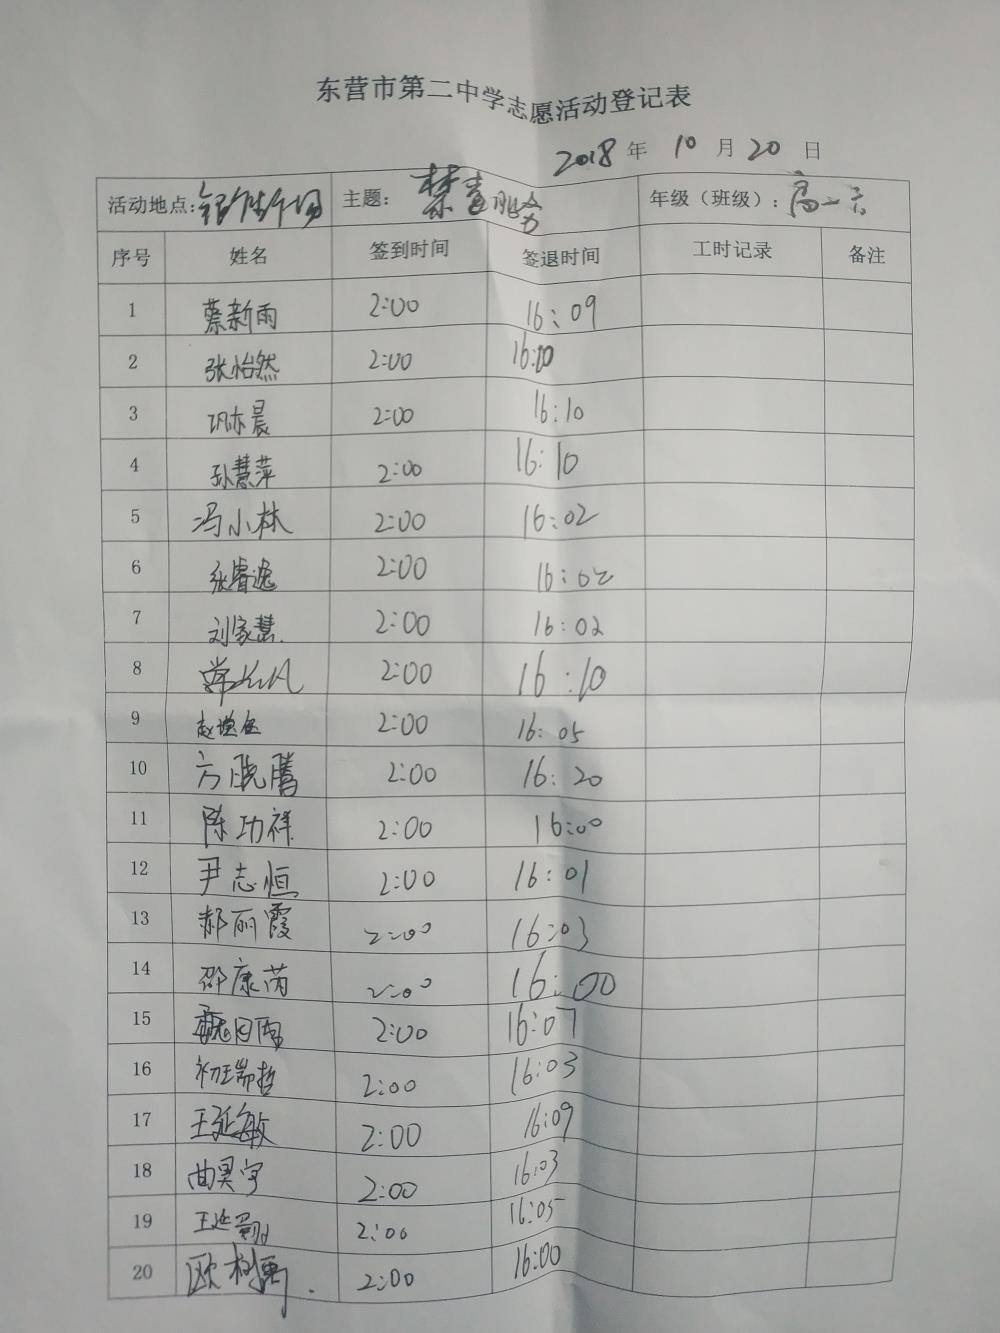 东营市第二中学志愿活动登记表
2018 年 10 月 20 日
活动地点: 银座广场 主题: 禁毒 年级（班级）: 高一六
序号 姓名 签到时间 签退时间 工时记录 备注
1 蔡新雨 2:00 16:09
2 张怡然 2:00 16:10
3 巩亦晨 2:00 16:10
4 孙慧萍 2:00 16:10
5 冯小林 2:00 16:02
6 张睿逸 2:00 16:02
7 刘家慧 2:00 16:02
8 2:00 16:10
9 赵 2:00 16:05
10 方晓腾 2:00 16:20
11 陈功祥 2:00 16:00
12 尹志恒 2:00 16:01
13 郝丽霞 2:00 16:03
14 邵康芮 2:00 16:00
15 2:00 16:07
16 初瑞哲 2:00 16:03
17 王延敏 2:00 16:09
18 曲昊宇 2:00 16:03
19 王延 2:00 16:05
20 欧树 2:00 16:00